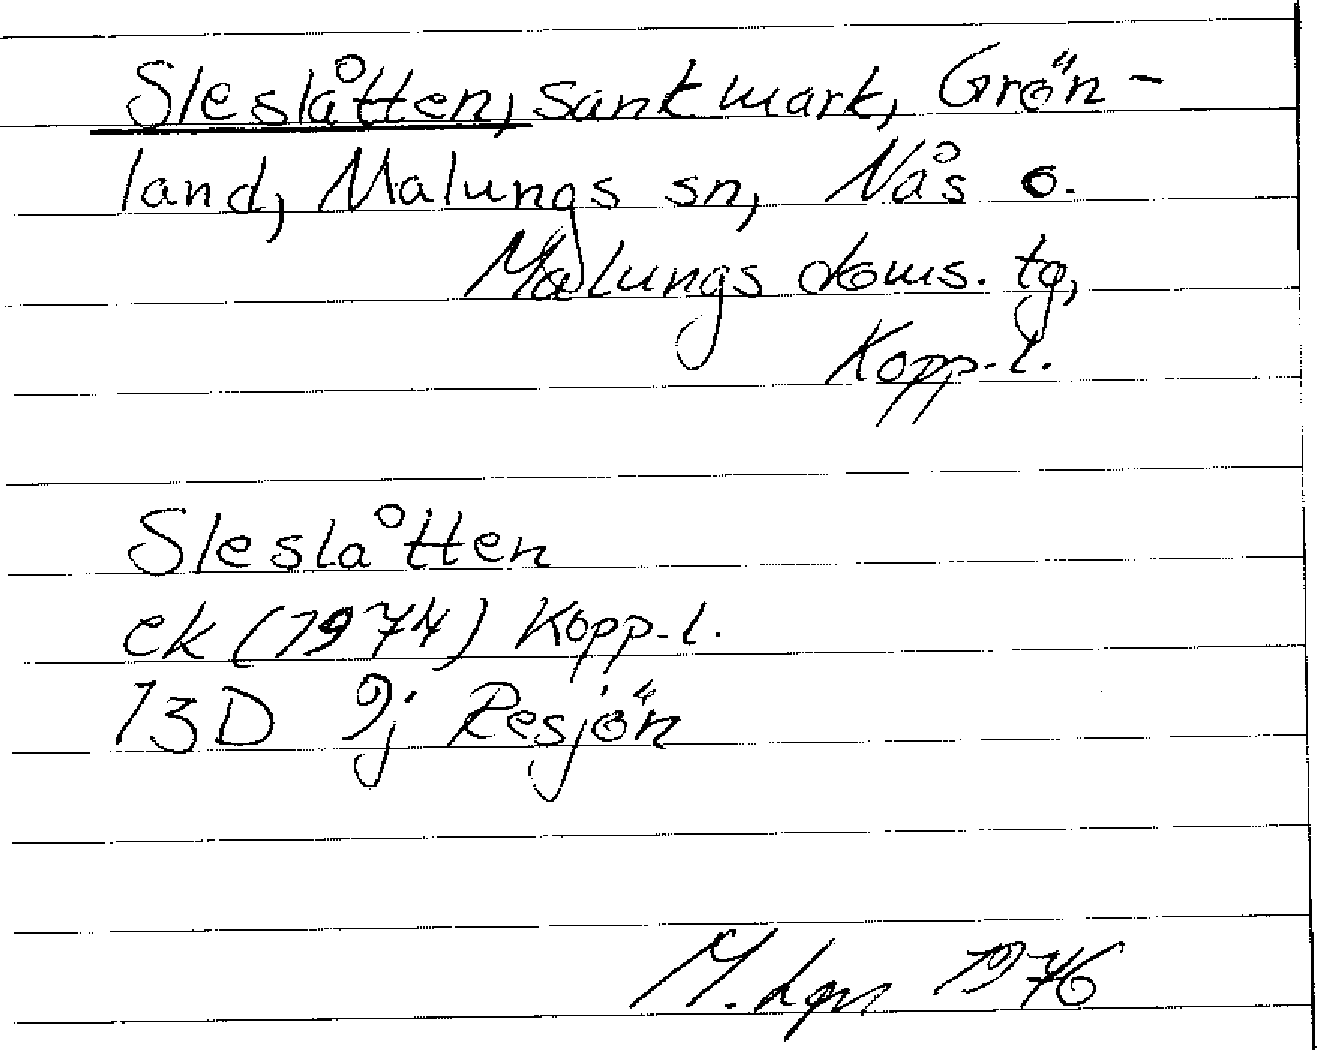 Sleslåtten, sankmark, Grön-
land, Malungs sn, Nås o.
Malungs doms. tg,
Kopp. l.
Sleslåtten
ek (1974) Kopp. l.
13D 9j Resjön
M. Lgn 1976